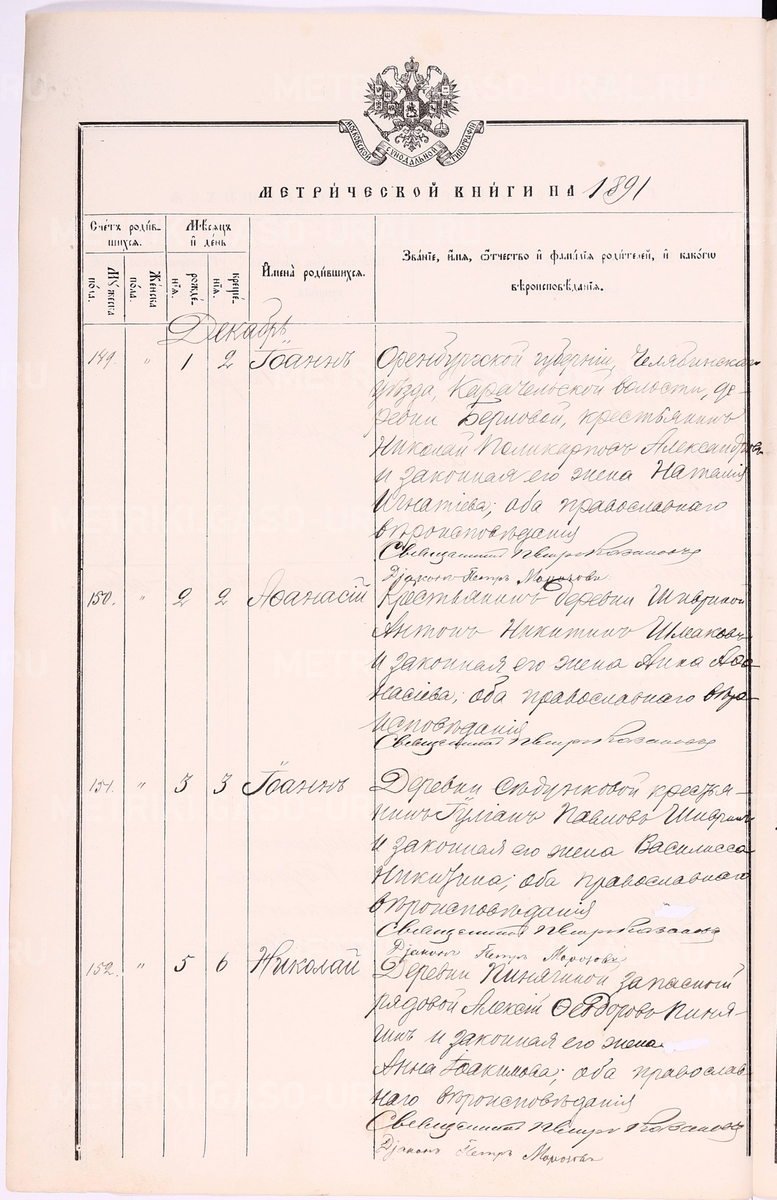 МОСКОВСКОЙ СУНОДАЛЬНОЙ ТИПОГРАФІИ
МЕТРИ́ЧЕСКОЙ КНИ́ГИ НА 1891
Сче́тъ роди́в-
шихся.
Мѣсяцъ
и҆ де́нь
И҆мена̀ роди́вшихся.
Зва́нїе, и҆́мя, ѻ҆́тчество и҆ фамилія роди́телей, и҆ како́гѡ
вѣроисповѣ́данїѧ.
Мꙋжеска
по́ла.
Же́нска
по́ла.
рожде́-
нїѧ.
креще́-
нїѧ.
Декабрь
149 " 1 2 Іоаннъ Оренбургской губерніи, Челябинскаго
уѣзда, Карачельской волости, де-
ревни Берловой, крестьянинъ
Николай Поликарповъ Александровъ
и законная его жена Наталія
Игнатіева; оба православнаго
вѣроисповѣданія
Священникъ Петръ
Діаконъ Петръ Морозовъ
150. " 2 2 Аѳанасій Крестьянинъ деревни
Антонъ Никитинъ
и законная его жена Анна Аѳа-
насіева; оба православнаго вѣро-
исповѣданія
Священникъ Петръ
151. " 3 3 Іоаннъ Деревни крестья-
нинъ Іуліанъ Павловъ
и законная его жена Василисса
Никитина; оба православнаго
вѣроисповѣданія
Священникъ Петръ
Діаконъ Петръ Морозовъ
152. " 5 6 Николай Деревни Пинягиной запасный
рядовой Алексій Ѳеодоровъ Пиня-
гинъ и законная его жена
Анна Іоакимова; оба православ-
наго вѣроисповѣданія
Священникъ Петръ
Діаконъ Петръ Морозовъ